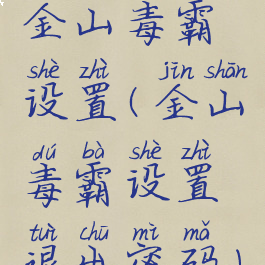 金山毒霸
shè zhì jīn shān
设置(金山
dú bà shè zhì
毒霸设置
tuì chū mì mǎ
退出密码)